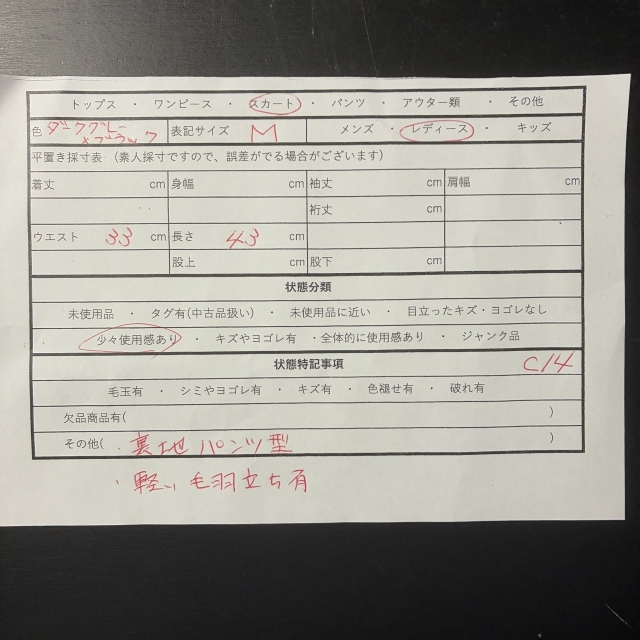 トップス ・ ワンピース ・ スカート ・ パンツ ・ アウター類 ・ その他
色 ダークグレー×ブラック 表記サイズ M メンズ ・ レディース ・ キッズ
平置き採寸表 （素人採寸ですので、誤差がでる場合がございます）
着丈 cm 身幅 cm 袖丈 cm 肩幅 cm
裄丈 cm
ウエスト 33 cm 長さ 43 cm
股上 cm 股下 cm
状態分類
未使用品 ・ タグ有(中古品扱い) ・ 未使用品に近い ・ 目立ったキズ・ヨゴレなし
少々使用感あり ・ キズやヨゴレ有 ・全体的に使用感あり ・ ジャンク品
状態特記事項 C14
毛玉有 ・ シミやヨゴレ有 ・ キズ有 ・ 色褪せ有 ・ 破れ有
欠品商品有( )
その他( ・裏地パンツ型 )
・軽い毛羽立ち有